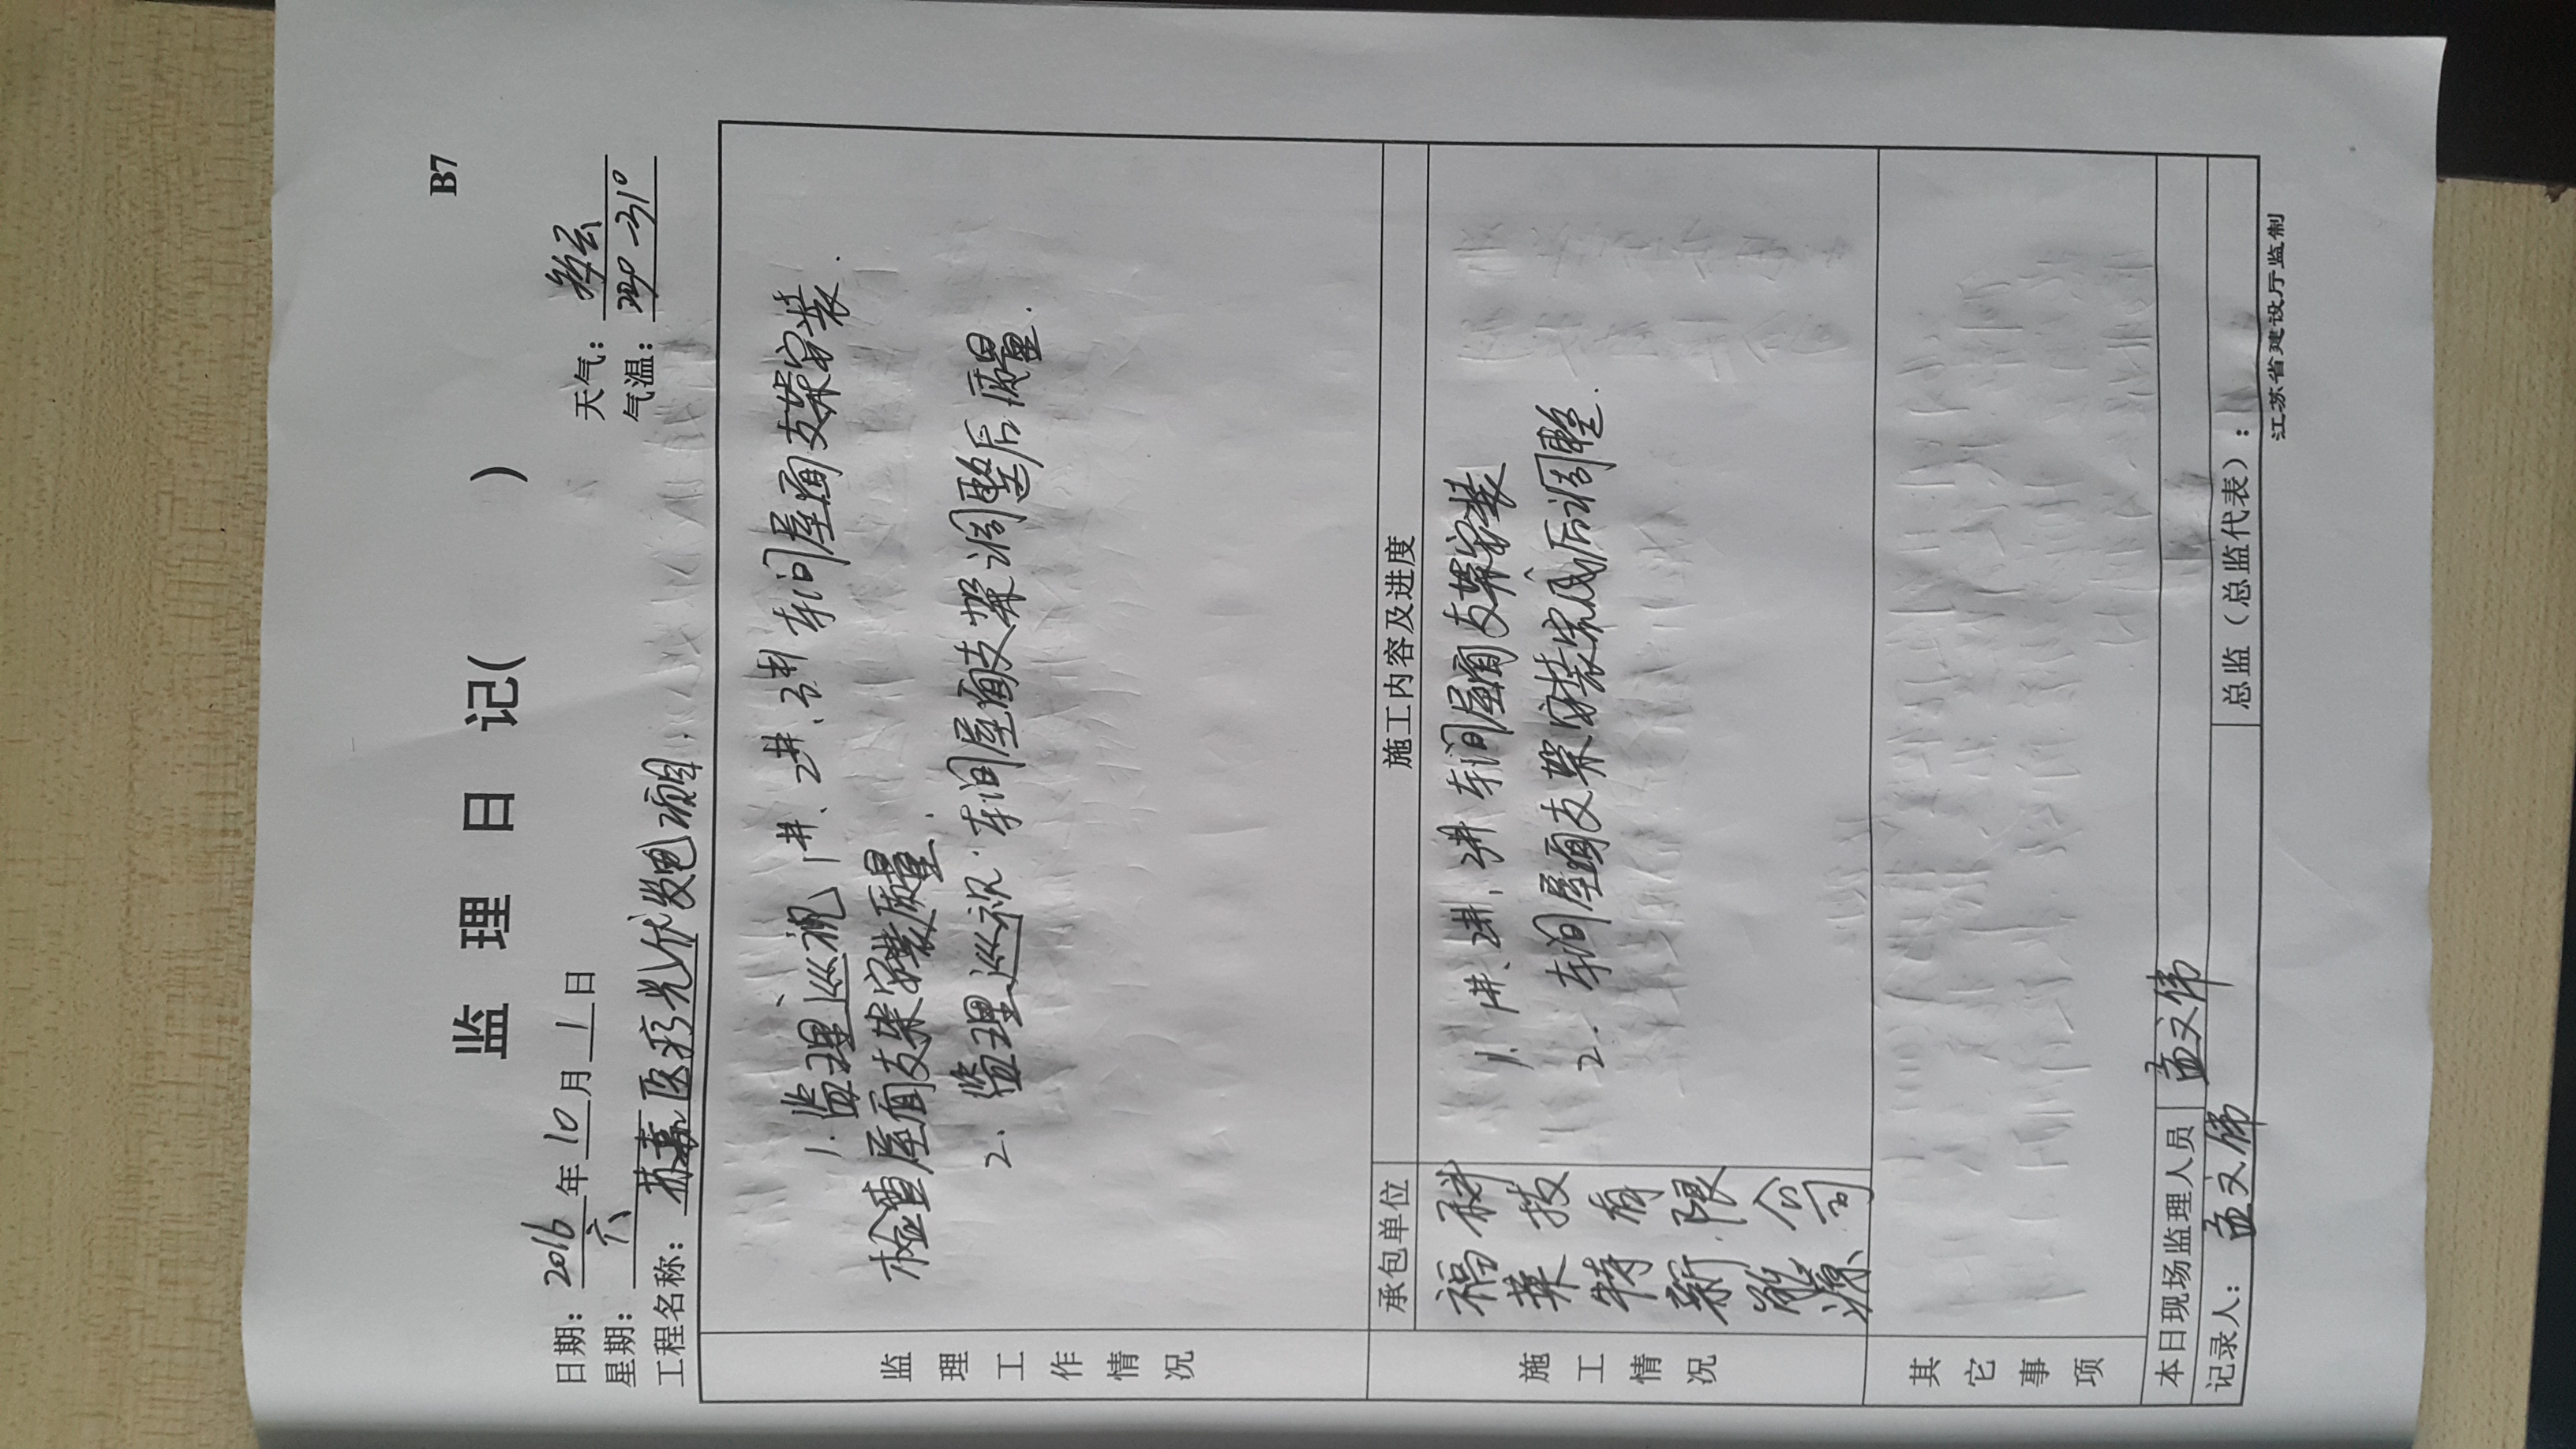 B7
监 理 日 记( )
日期：2016年10月1日 天气：多云
星期：六 气温：23°-31°
工程名称：林嘉医疗光伏发电项目
监理工作情况
1.监理巡视1#、2#、3#车间屋面支架安装.
检查屋面支架安装质量.
2.监理巡视.车间屋面支架调整后质量.
施工情况
承包单位 施工内容及进度
福莱特新能源科技有限公司
1. 1#、2#、3#车间屋面支架安装
2. 车间屋面支架安装完成后调整.
其它事项
本日现场监理人员 孟文伟
记录人：孟文伟 总监（总监代表）：
江苏省建设厅监制